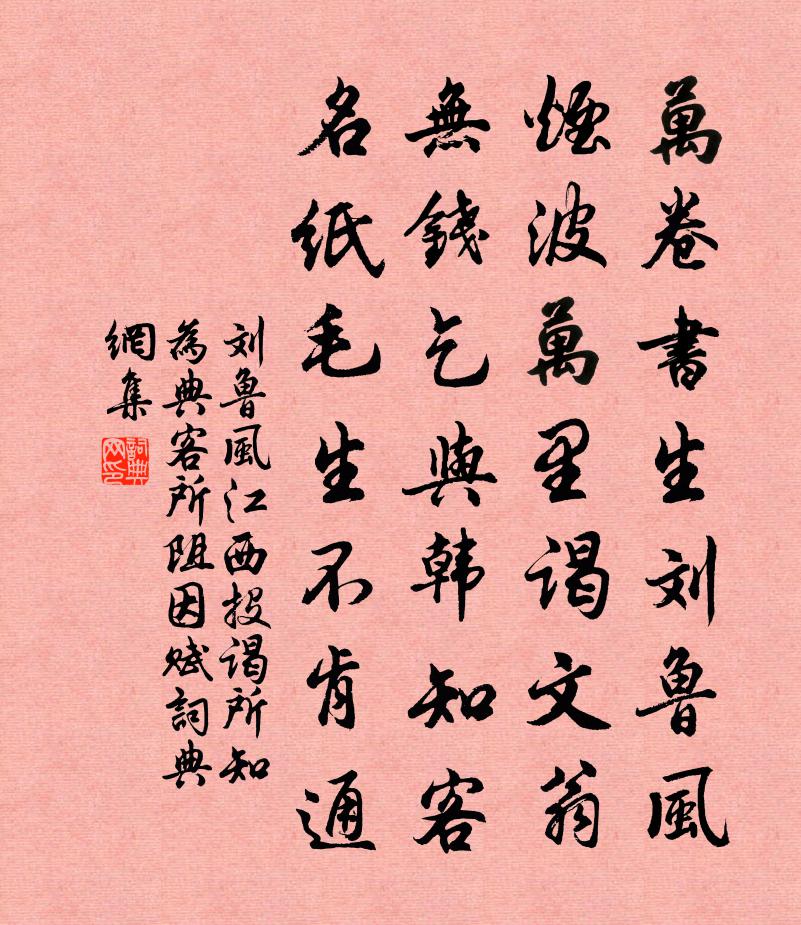 萬卷書生刘魯風
煙波萬里謁文翁
無錢乞與韩知客
名紙毛生不肯通
刘魯風江西投謁所知
為典客所阻因赋詞典
網集
詞典網印